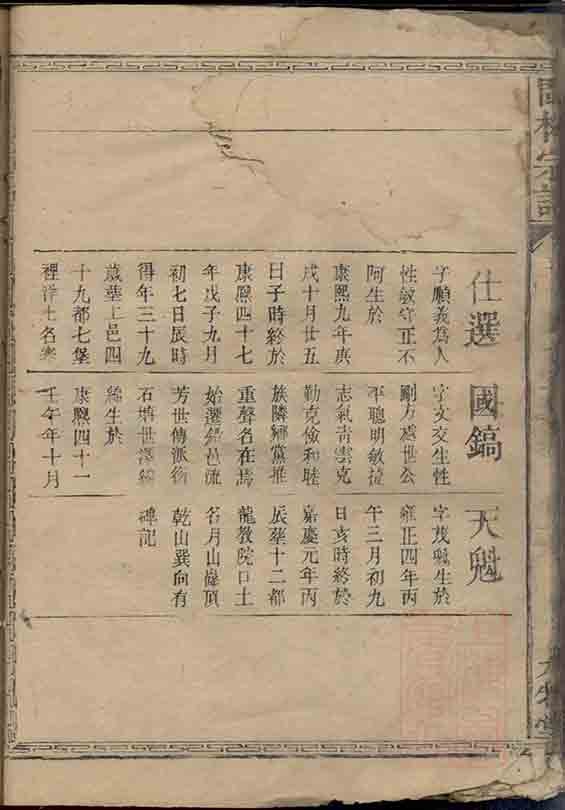 仕選
字順義為人
性敏守正不
阿生於
康熙九年庚
戌十月廿五
日子時終於
康熙四十七
年戊子九月
初七日辰時
得年三十九
歲葬上邑四
十九都七堡
裡洋土名寨
國鎬
字文交生性
剛方處世公
平聰明敏捷
志氣青雲克
勤克儉和睦
族隣鄉黨推
重聲名在焉
始遷鉛邑流
芳世傳派衍
石塘世澤綿
綿生於
康熙四十一
壬午年十月
天魁
字茂魁生於
雍正四年丙
午三月初九
日亥時終於
嘉慶元年丙
辰葬十二都
龍教院口土
名月山嶺頂
乾山巽向有
碑記